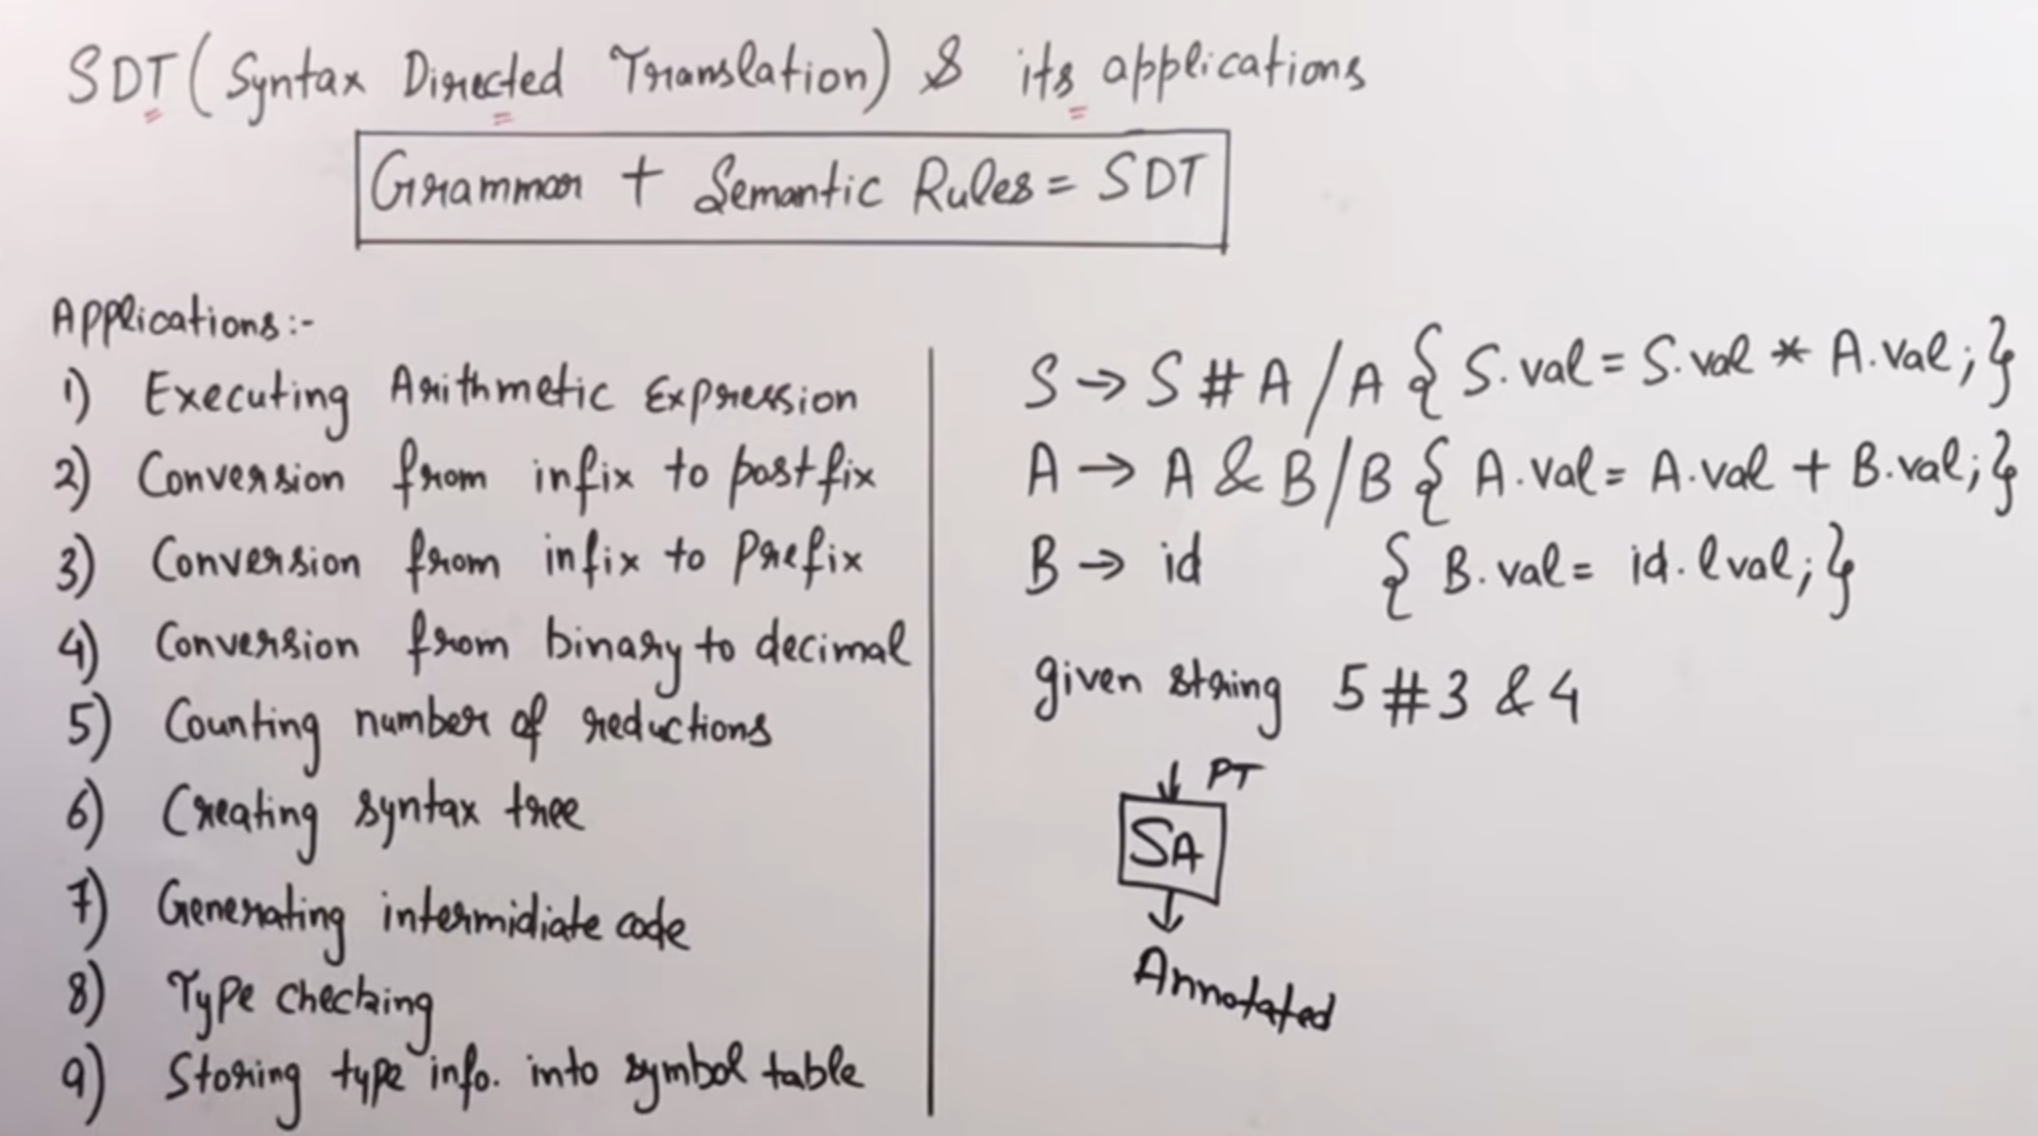 SDT (Syntax Directed Translation) & its applications
Grammar + Semantic Rules = SDT
Applications:-
1) Executing Arithmetic Expression
2) Conversion from infix to postfix
3) Conversion from infix to Prefix
4) Conversion from binary to decimal
5) Counting number of reductions
6) Creating syntax tree
7) Generating intermidiate code
8) Type checking
9) Storing type info. into symbol table
S → S # A / A { S.val = S.val * A.val; }
A → A & B / B { A.val = A.val + B.val; }
B → id { B.val = id.lval; }
given string 5 # 3 & 4
PT
SA
Annotated